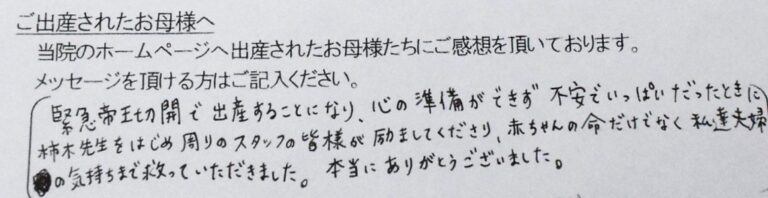 ご出産されたお母様へ
当院のホームページへ出産されたお母様たちにご感想を頂いております。
メッセージを頂ける方はご記入ください。
緊急帝王切開で出産することになり、心の準備ができず 不安でいっぱいだったときに
柿木先生をはじめ周りのスタッフの皆様が励ましてくださり、赤ちゃんの命だけでなく私達夫婦
の気持ちまで救っていただきました。本当にありがとうございました。